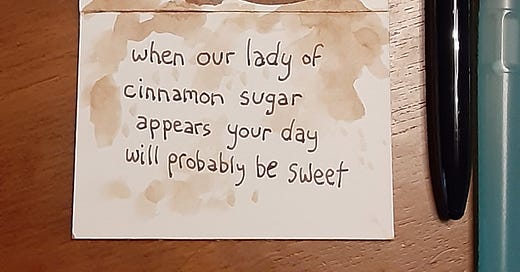 when our lady of
cinnamon sugar
appears your day
will probably be sweet